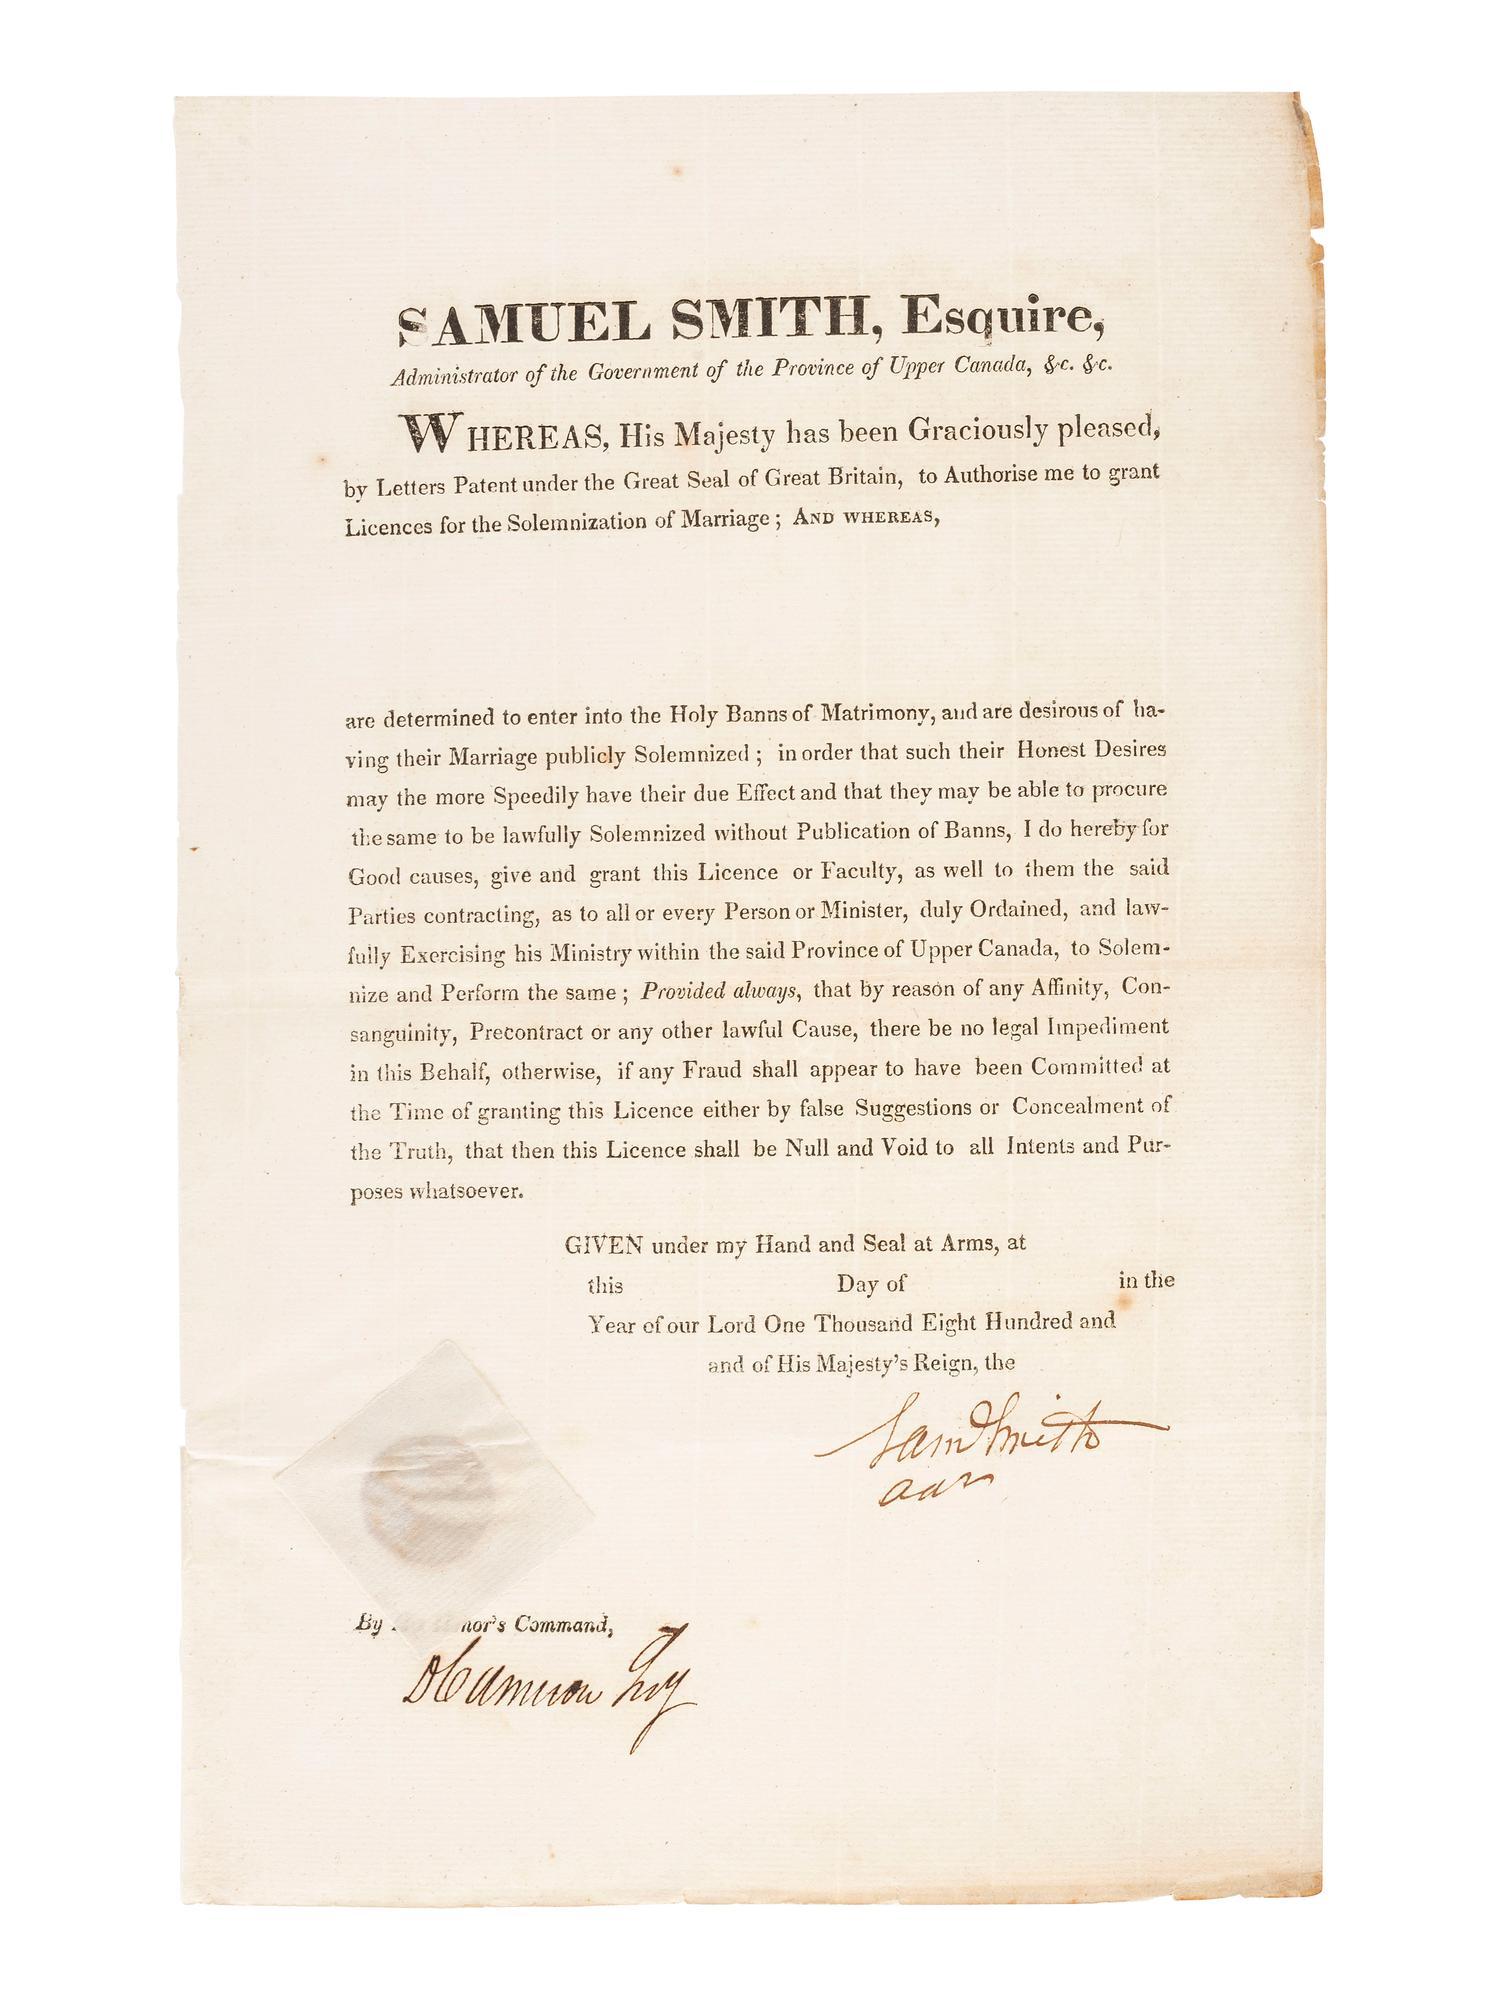 SAMUEL SMITH, Esquire,
Administrator of the Government of the Province of Upper Canada, &c. &c.
WHEREAS, His Majesty has been Graciously pleased,
by Letters Patent under the Great Seal of Great Britain, to Authorise me to grant
Licences for the Solemnization of Marriage; AND WHEREAS,
are determined to enter into the Holy Banns of Matrimony, and are desirous of ha-
ving their Marriage publicly Solemnized; in order that such their Honest Desires
may the more Speedily have their due Effect and that they may be able to procure
the same to be lawfully Solemnized without Publication of Banns, I do hereby for
Good causes, give and grant this Licence or Faculty, as well to them the said
Parties contracting, as to all or every Person or Minister, duly Ordained, and law-
fully Exercising his Ministry within the said Province of Upper Canada, to Solem-
nize and Perform the same; Provided always, that by reason of any Affinity, Con-
sanguinity, Precontract or any other lawful Cause, there be no legal Impediment
in this Behalf, otherwise, if any Fraud shall appear to have been Committed at
the Time of granting this Licence either by false Suggestions or Concealment of
the Truth, that then this Licence shall be Null and Void to all Intents and Pur-
poses whatsoever.
GIVEN under my Hand and Seal at Arms, at
this Day of in the
Year of our Lord One Thousand Eight Hundred and
and of His Majesty's Reign, the
Saml Smith
By nor's Command,
D Cameron